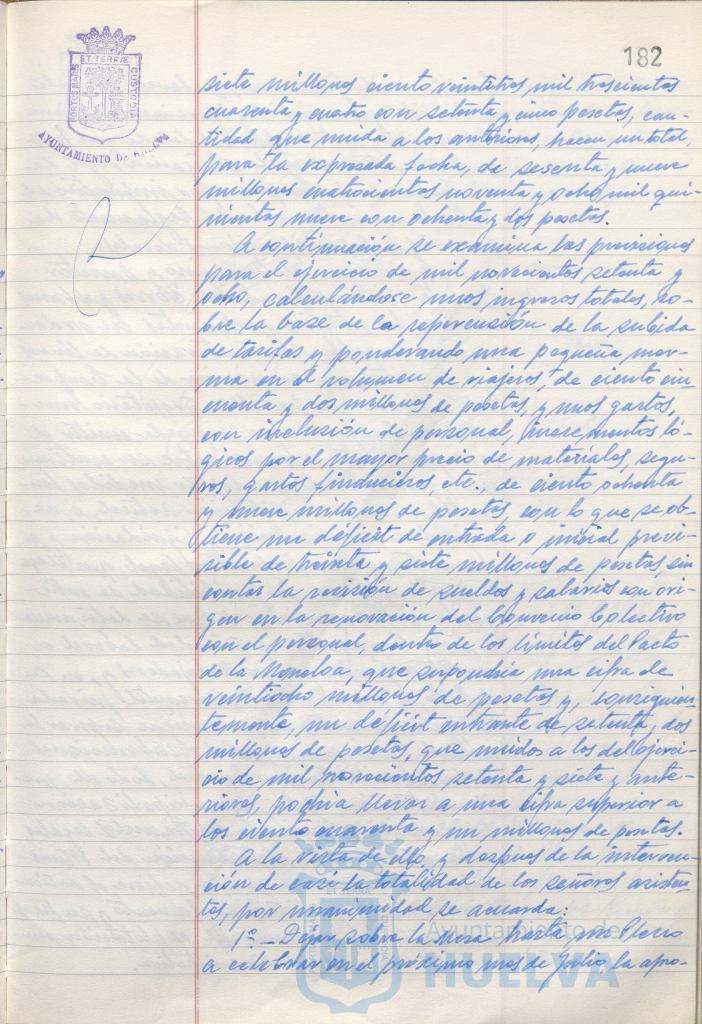 182
ET TERRÆ
PORTUS MARIS
CUSTODIA
AYUNTAMIENTO DE HUELVA
siete millones ciento veintitres mil trescientas
cuarenta y cuatro con setenta y cinco pesetas, can-
tidad que unida a los anteriores, hacen un total,
para la expresada fecha, de sesenta y nueve
millones cuatrocientas noventa y ocho mil qui-
nientas nueve con ochenta y dos pesetas.
A continuación se examina las previsiones
para el ejercicio de mil novecientos setenta y
ocho, calculándose unos ingresos totales, so-
bre la base de la repercusión de la subida
de tarifas y ponderando una pequeña mer-
ma en el volumen de viajeros, de ciento cin
cuenta y dos millones de pesetas, y unos gastos,
con inclusión de personal, incrementos ló-
gicos por el mayor precio de materiales, segu-
ros, gastos financieros, etc., de ciento ochenta
y nueve millones de pesetas, con lo que se ob-
tiene un déficit de entrada o inicial previ-
sible de treinta y siete millones de pesetas, sin
contar la revisión de sueldos y salarios con ori-
gen en la renovación del Convenio Colectivo
con el personal, dentro de los límites del Pacto
de la Moncloa, que supondría una cifra de
veintiocho millones de pesetas y, consiguien-
temente, un déficit entrante de setenta, dos
millones de pesetas, que unidos a los del Ejerci-
cio de mil novecientos setenta y siete y ante-
riores, podría llevar a una cifra superior a
los ciento cuarenta y un millones de pesetas.
A la vista de ello, y despues de la interven-
ción de casi la totalidad de los señores asisten-
tes, por unanimidad se acuerda:
1º.- Dejar sobre la Mesa hasta un Pleno
a celebrar en el próximo mes de Julio la apro-
Ayuntamiento de
HUELVA